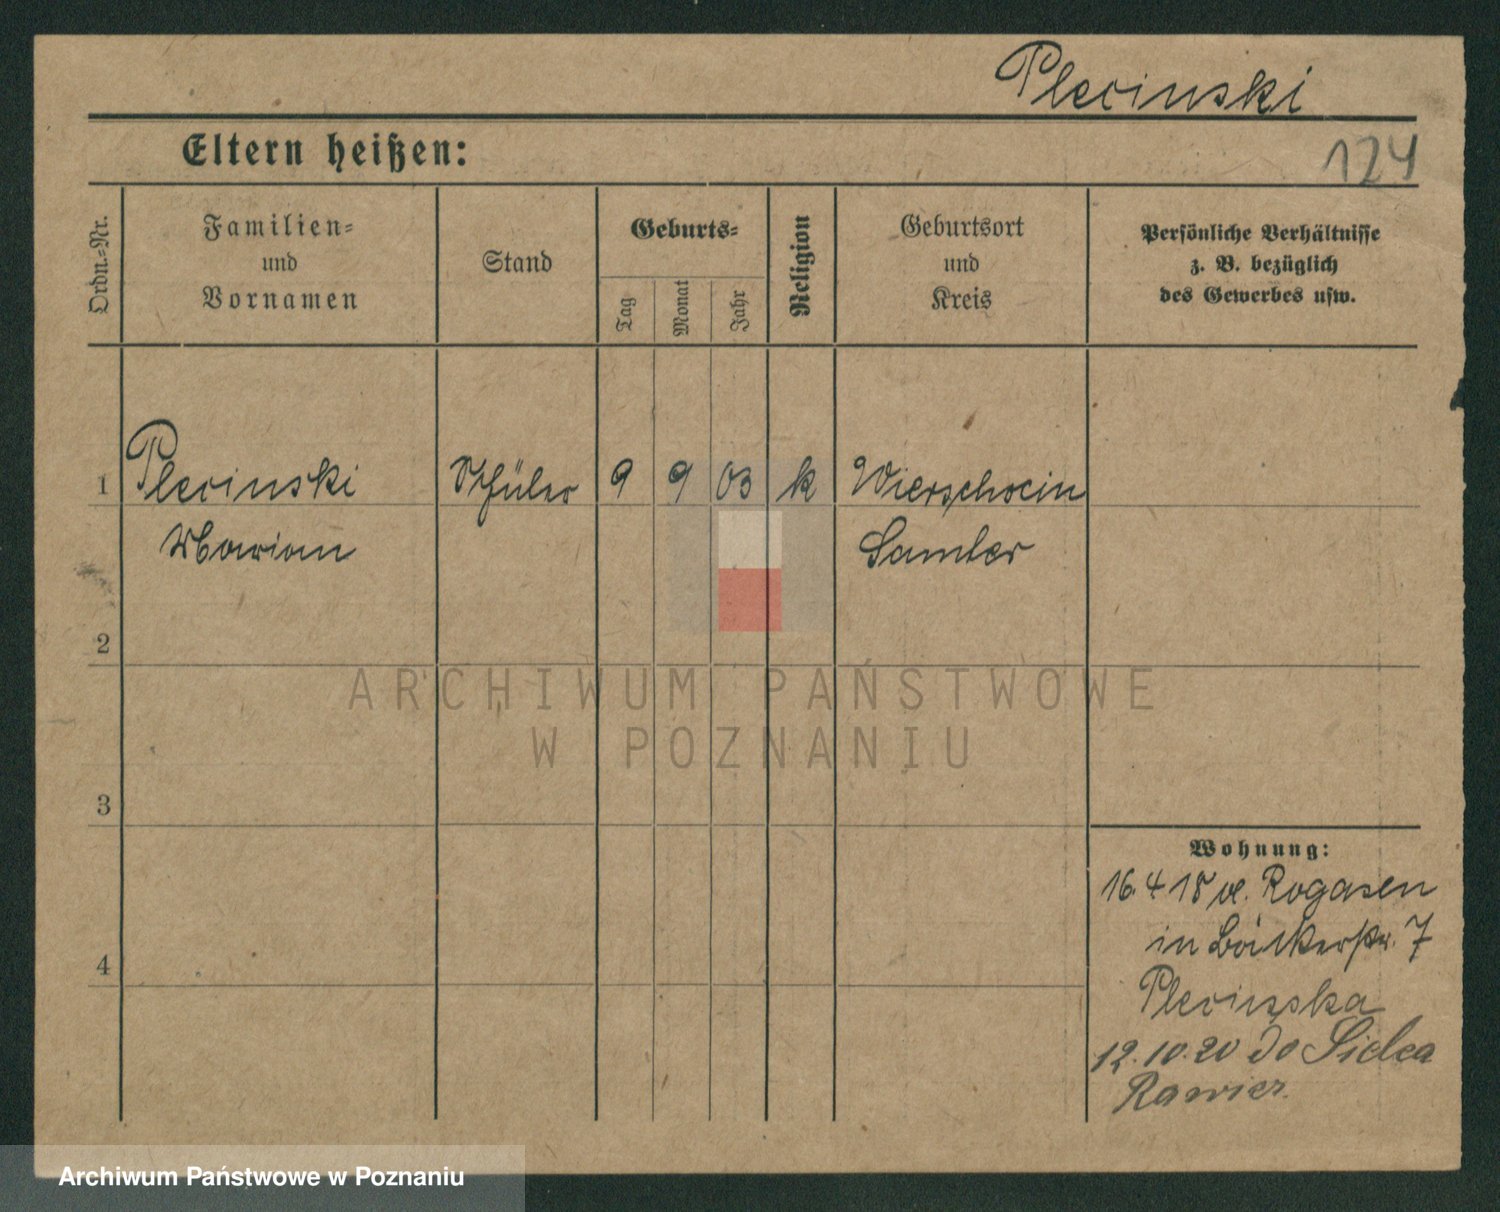 Plecinski
Eltern heißen:
124
Ordn.-Nr.
Familien=
und
Vornamen
Stand
Geburts=
Tag
Monat
Jahr
Religion
Geburtsort
und
Kreis
Persönliche Verhältnisse
z. B. bezüglich
des Gewerbes usw.
1 Plecinski Schüler 9 9 03 k Wierschocin
Marian Samter
2
ARCHIWUM PAŃSTWOWE
W POZNANIU
3
Wohnung:
16.4 18 v. Rogasen
in Bäckerstr. 7
4
Plecinska
12.10.20 do Sielca
Rawicz.
Archiwum Państwowe w Poznaniu